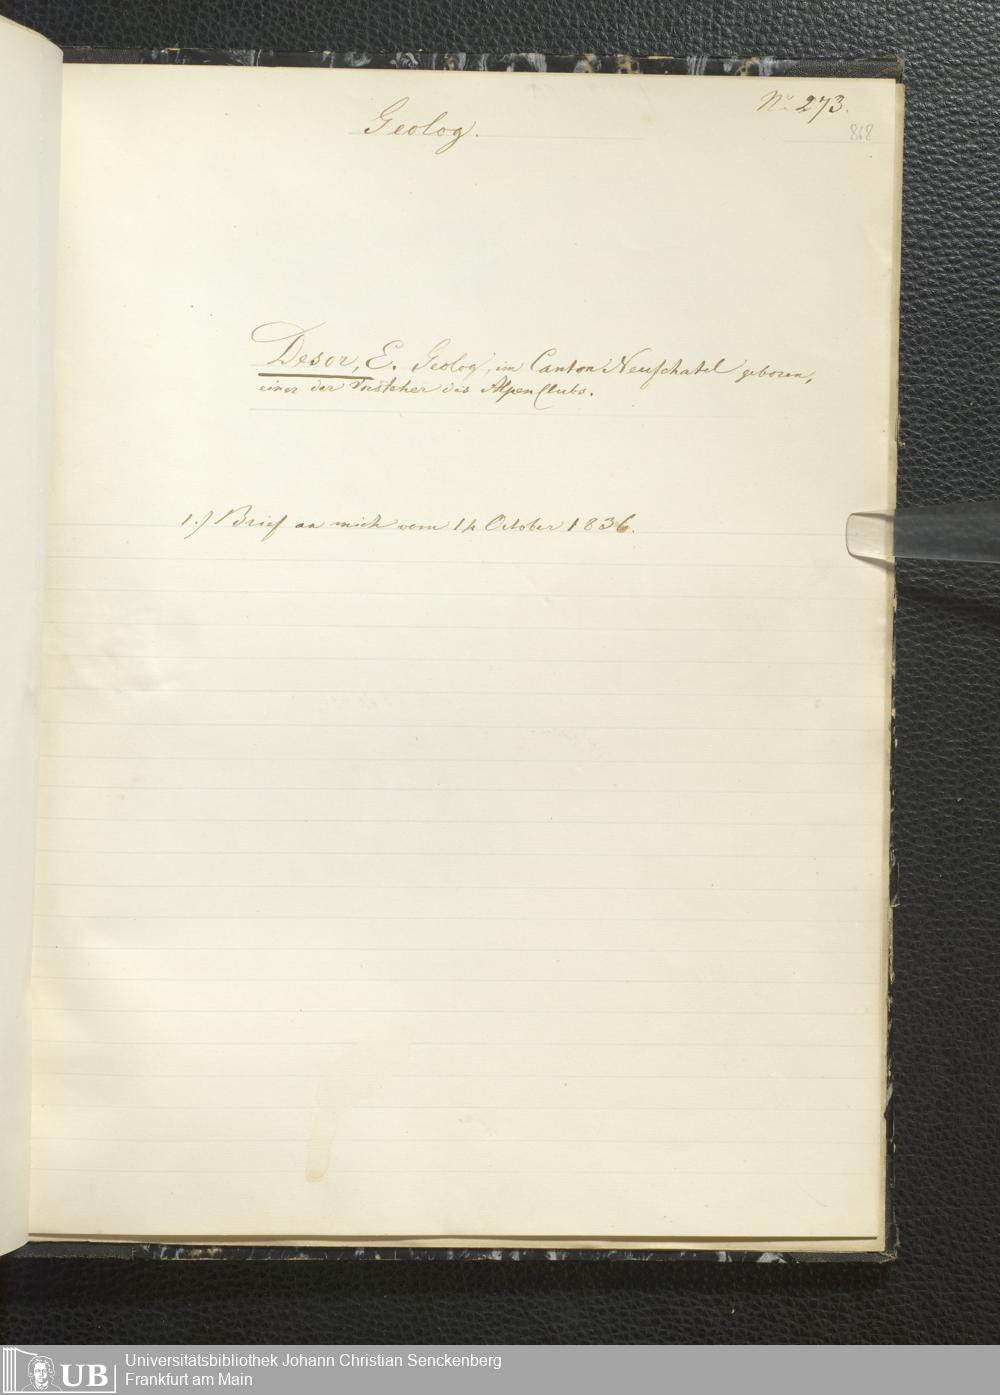 Geolog.
No 273.
868
Desor, E. Geolog, im Canton Neufchatel geboren,
einer der Vorsteher des Alpen Clubs.
1.) Brief an mich vom 14 October 1836.
UB
Universitätsbibliothek Johann Christian Senckenberg
Frankfurt am Main